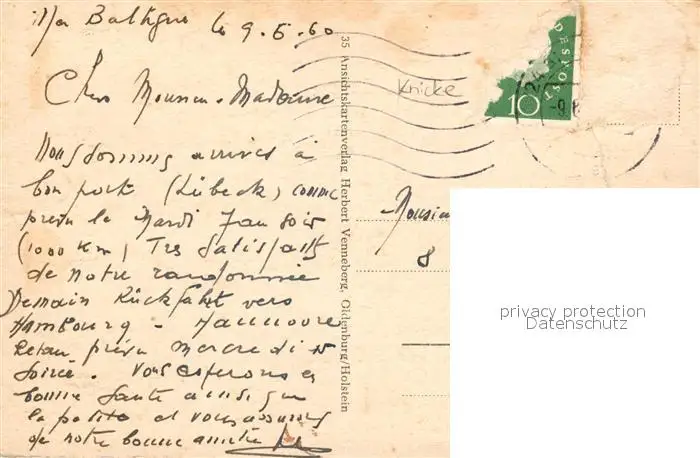 Mer Baltique le 9.6.60
Chers Monsieur-Madame
Nous sommes arrivés à
bon port (Lübeck) comme
prévu le Mardi 7 au soir
(1000 Km) Très satisfaits
de notre randonnée
Demain Rückfahrt vers
Hambourg - Hannovre
Retour prévu Mercredi 15
soirée. Vous espérons en
bonne santé ainsi que
la petite et vous assurons
de notre bonne amitié
35 Ansichtskartenverlag Herbert Venneberg, Oldenburg/Holstein
Knicke
10
-9.6
Monsieu
8
privacy protection
Datenschutz